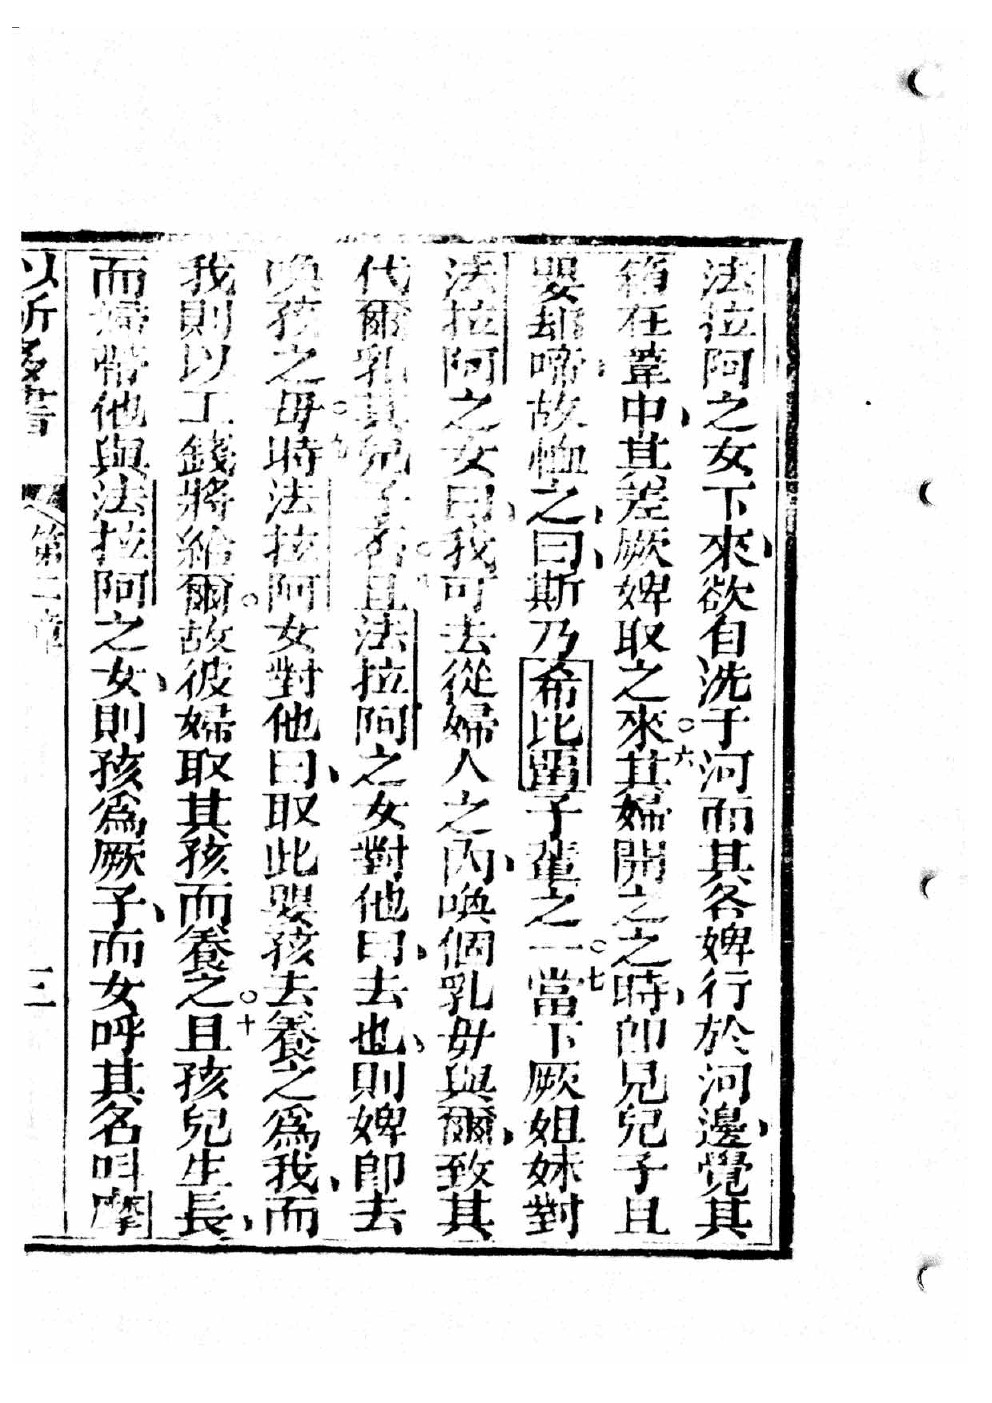 法拉阿之女下來欲自洗于河而其各婢行於河邊覺其
箱在葦中其差厥婢取之來○六其婦開之之時卽見兒子且
嬰却啼故恤之曰斯乃希比畱子輩之一○七當下厥姐妹對
法拉阿之女曰我可去從婦人之內喚個乳母與爾致其
代爾乳其兒子否○八且法拉阿之女對他曰去也則婢卽去
喚孩之母○九時法拉阿女對他曰取此嬰孩去養之爲我而
我則以工錢將給爾○故彼婦取其孩而養之○十且孩兒生長
而婦帶他與法拉阿之女則孩爲厥子而女呼其名呌摩
以所多書 第二章 三